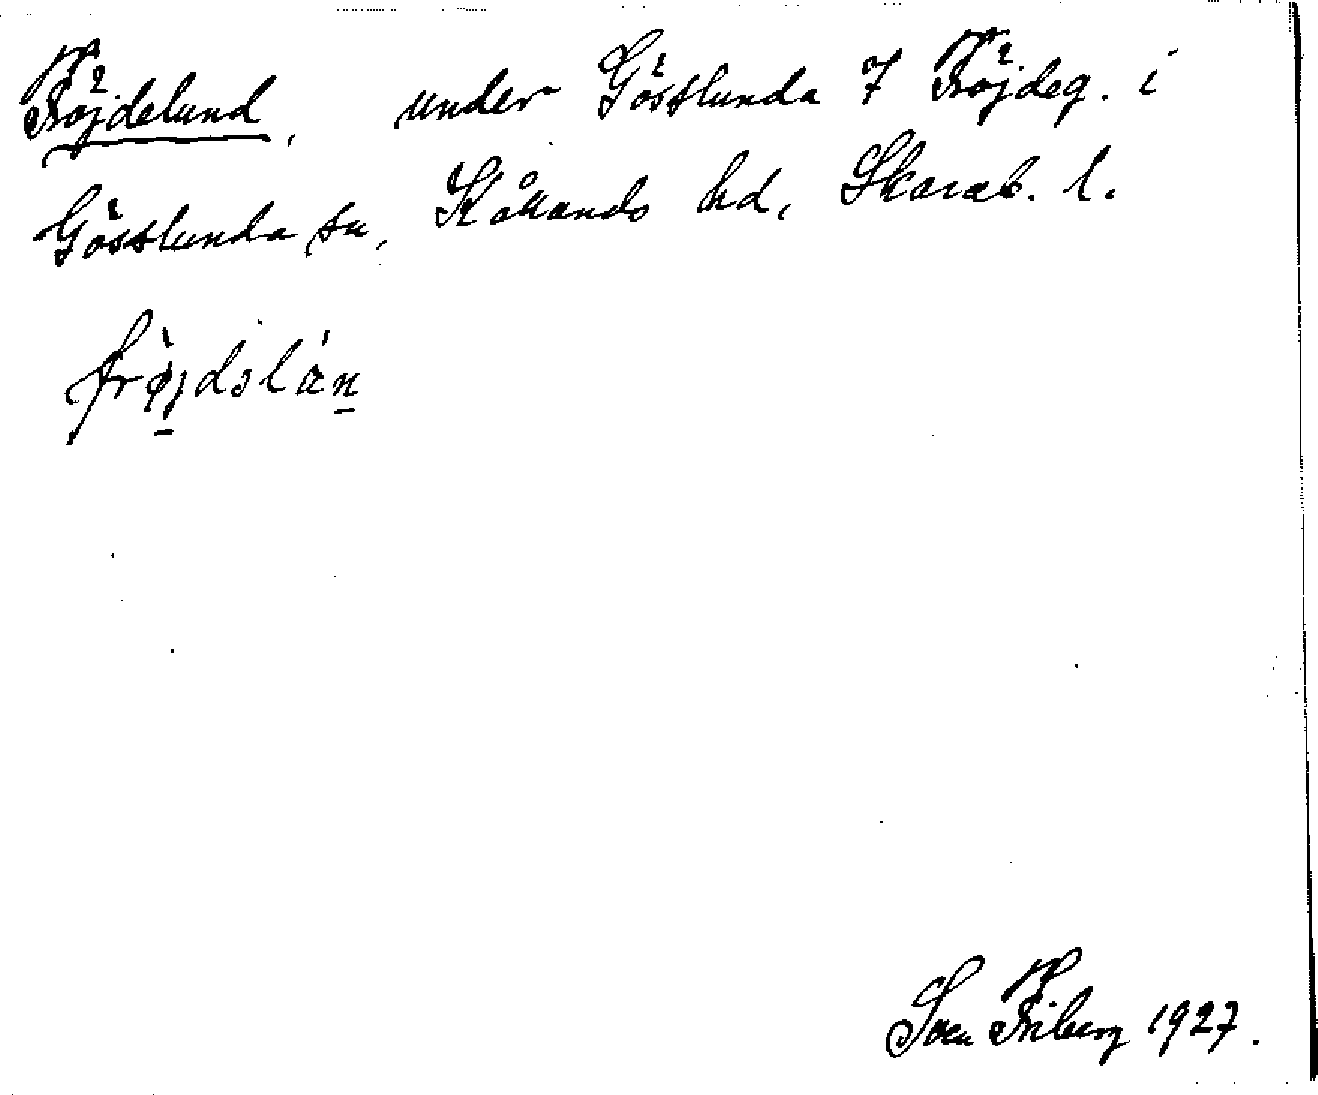 Fröjdelund, under Gösslunda 7 Fröjdeg. i
Gösslunda sn, Kållands hd, Skarab. l.
frø̀jdslán
Sven Friberg 1927.